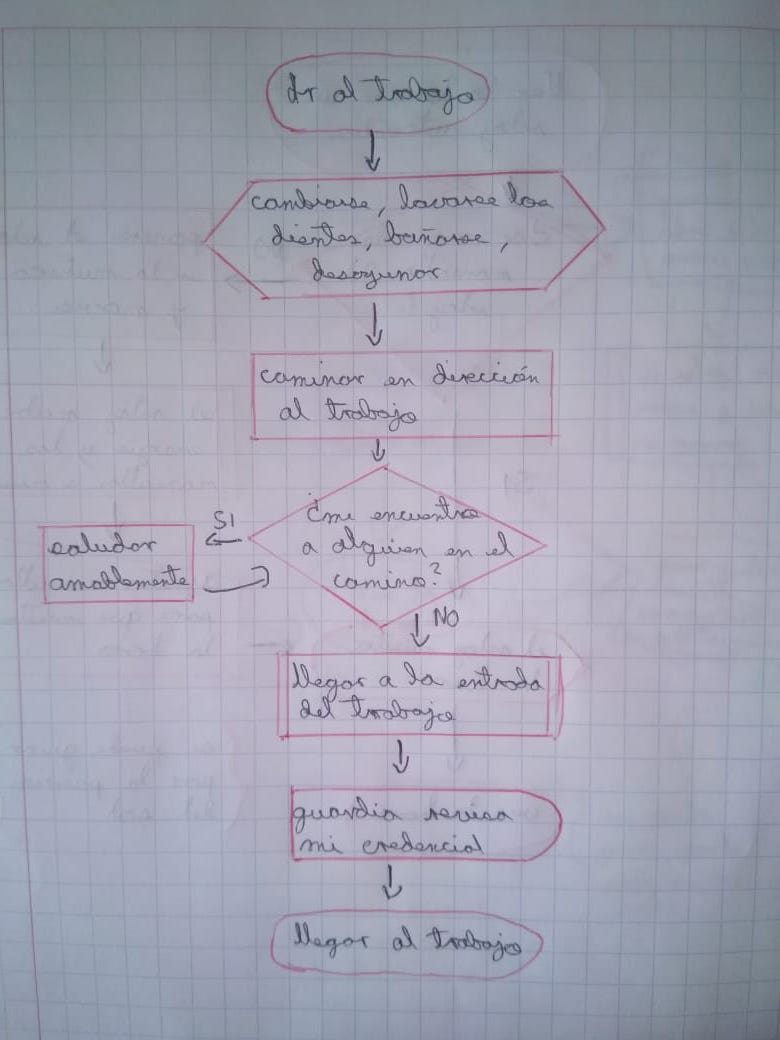 Ir al trabajo
cambiarse, lavarse los
dientes, bañarse,
desayunar
caminar en dirección
al trabajo
¿me encuentro
a alguien en el
camino?
SI
saludar
amablemente
NO
llegar a la entrada
del trabajo
guardia revisa
mi credencial
llegar al trabajo